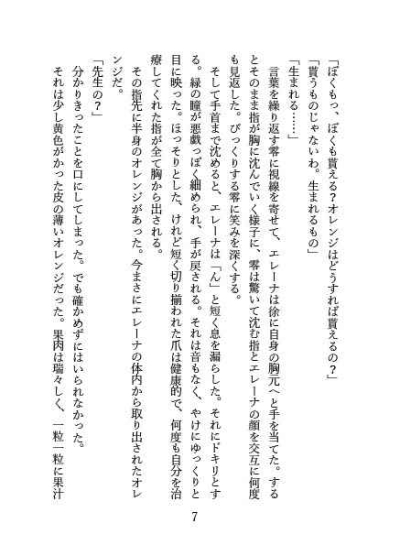 「ぼくもっ、ぼくも貰える？オレンジはどうすれば貰えるの？」
「貰うものじゃないわ。生まれるもの」
「生まれる……」
言葉を繰り返す零に視線を寄せて、エレーナは徐に自身の胸元へと手を当てた。する
とそのまま指が胸に沈んでいく様子に、零は驚いて沈む指とエレーナの顔を交互に何度
も見返した。びっくりする零に笑みを深くする。
そして手首まで沈めると、エレーナは「ん」と短く息を漏らした。それにドキリとす
る。緑の瞳が悪戯っぽく細められ、手が戻される。それは音もなく、やけにゆっくりと
目に映った。ほっそりとした、けれど短く切り揃われた爪は健康的で、何度も自分を治
療してくれた指が全て胸から出される。
その指先に半身のオレンジがあった。今まさにエレーナの体内から取り出されたオレ
ンジだ。
「先生の？」
分かりきったことを口にしてしまった。でも確かめずにはいられなかった。
それは少し黄色がかった皮の薄いオレンジだった。果肉は瑞々しく、一粒一粒に果汁
7